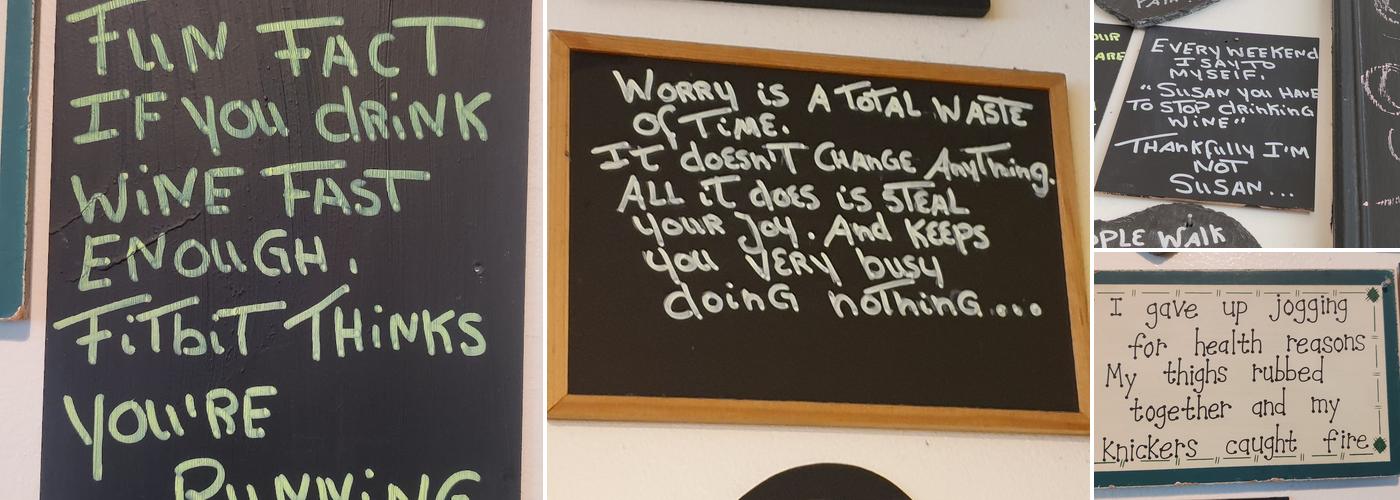 FUN FACT
IF you dRiNK
WiNE FAST
ENOUGH.
FiTbiT THiNKS
you'RE
RUNNiNG
WORRY is A TOTAL WASTE
Of TiME.
IT doESN'T CHANGE AnyTHing.
ALL iT doES iS STEAL
youR Joy. And KEEPS
you VERY busy
doiNG noTHinG...
PAiN.
OUR
ARE
EVERY WEEKEND
I SAY TO
MYSELF.
" SUSAN you HAVE
TO STOP dRiNKiNG
WiNE"
THANKfully I'M
NOT
SUSAN...
OPLE WALK
I gave up jogging
for health reasons
My thighs rubbed
together and my
knickers caught fire